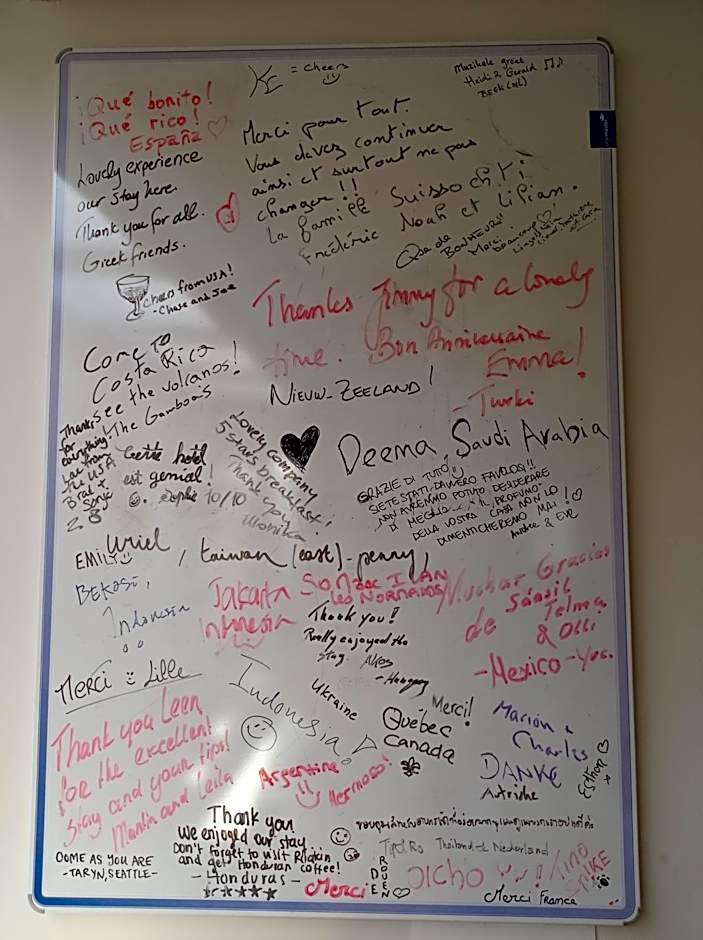 = Cheers
Muzikale groet
Heidi & Gerald
BEEK (NL)
¡Qué bonito!
¡Qué rico!
España
Lovely experience
our stay here.
Thank you for all.
Greek friends.
Merci pour tout.
Vous devez continuer
ainsi et surtout ne pas
changer!!
La famille Suisso ch'ti
Frédéric Noah et Lilian.
Que du
BONHEUR!!
Merci
beaucoup
Cheers from USA!
- Chase and
Thanks Jimmy for a lovely
time. Bon Anniversaire
Emma!
- Turki
COME TO
COSTA RICA
SEE the VOLCANOS!
The Gamboas
NIEUW-ZEELAND!
Thanks
for
everything
Love from
the USA
Brat &
Sonja
Cette hotel
est genial!
10/10
Lovely company
5 stars breakfast!
Thank you
Monika
Deema, Saudi Arabia
GRAZIE DI TUTO
SIETE STATI DAVVERO FAVOLOSI!!
NON AVREMMO POTUTO DESIDERARE
DI MEGLIO... IL PROFUMO
DELLA VOSTRA CASA NON LO
DIMENTICHEREMO MAI!
EMILY
Uriel
/ taiwan (east) - penny,
BEKASI,
Indonesia
Jakarta
Indonesia
Thank you!
Really enjoyed the
stay. Akos
- Hungary
Muchas Gracias
de
Telma
& Olli
- Mexico - Yuc.
Merci Lille
Indonesia
Ukraine
Merci!
Quebec
Canada
Marion &
Charles
DANKE
Autriche
Esthon
Thank you Leen,
for the excellent
stay and your tips!
Martin and Leila
Argentina
Hermoso!
Thank you
We enjoyed our stay
Don't forget to visit Roatan
and get Honduran coffee!
- Honduras -
COME AS YOU ARE
- TARYN, SEATTLE -
Merci
DE
ROUEN
Thailand & Nederland
DICHO
TINO
SPIKE
Merci France